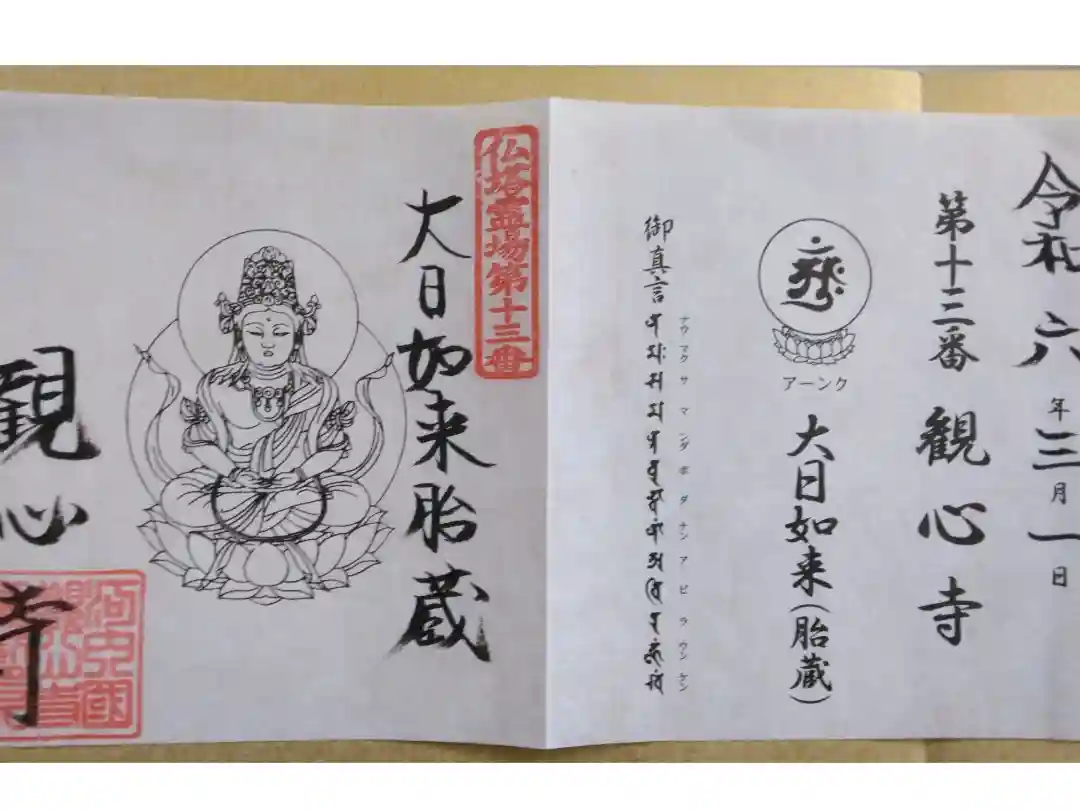 令和六年三月一日
第十三番 観心寺
アーンク
大日如来(胎蔵)
ナウマクサマンダボダナンアビラウンケン
御真言
仏塔霊場第十三番
大日如来胎蔵
観心寺
河内國